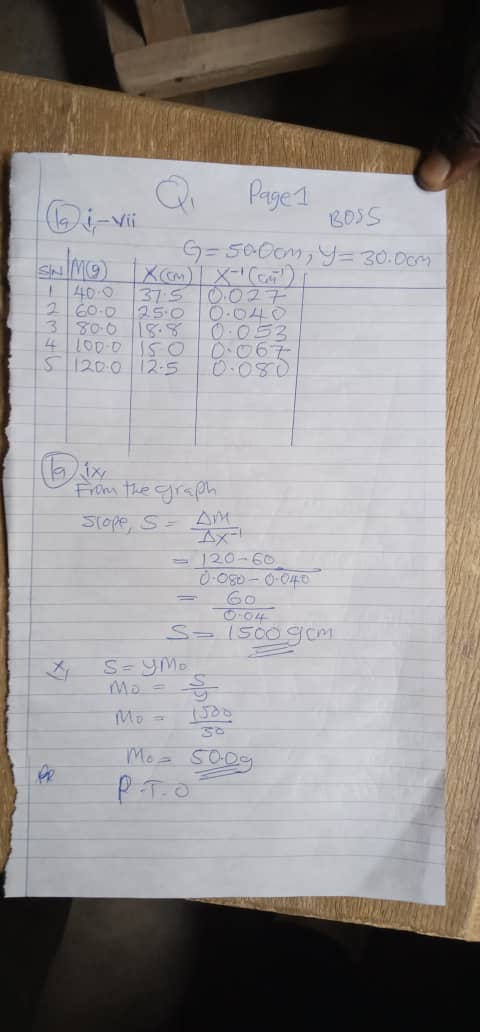 Q1 Page 1
BOSS
1a i - vii
G = 50.0cm, y = 30.0cm
S/N M(g) X(cm) X⁻¹(cm⁻¹)
1 40.0 37.5 0.027
2 60.0 25.0 0.040
3 80.0 18.8 0.053
4 100.0 15.0 0.067
5 120.0 12.5 0.080
1a ix,
From the graph
Slope, S = ΔM / ΔX⁻¹
= 120-60 / 0.080-0.040
= 60 / 0.04
S = 1500gcm
X, S = yMo
Mo = S / y
Mo = 1500 / 30
Mo = 50.0g
P.T.O